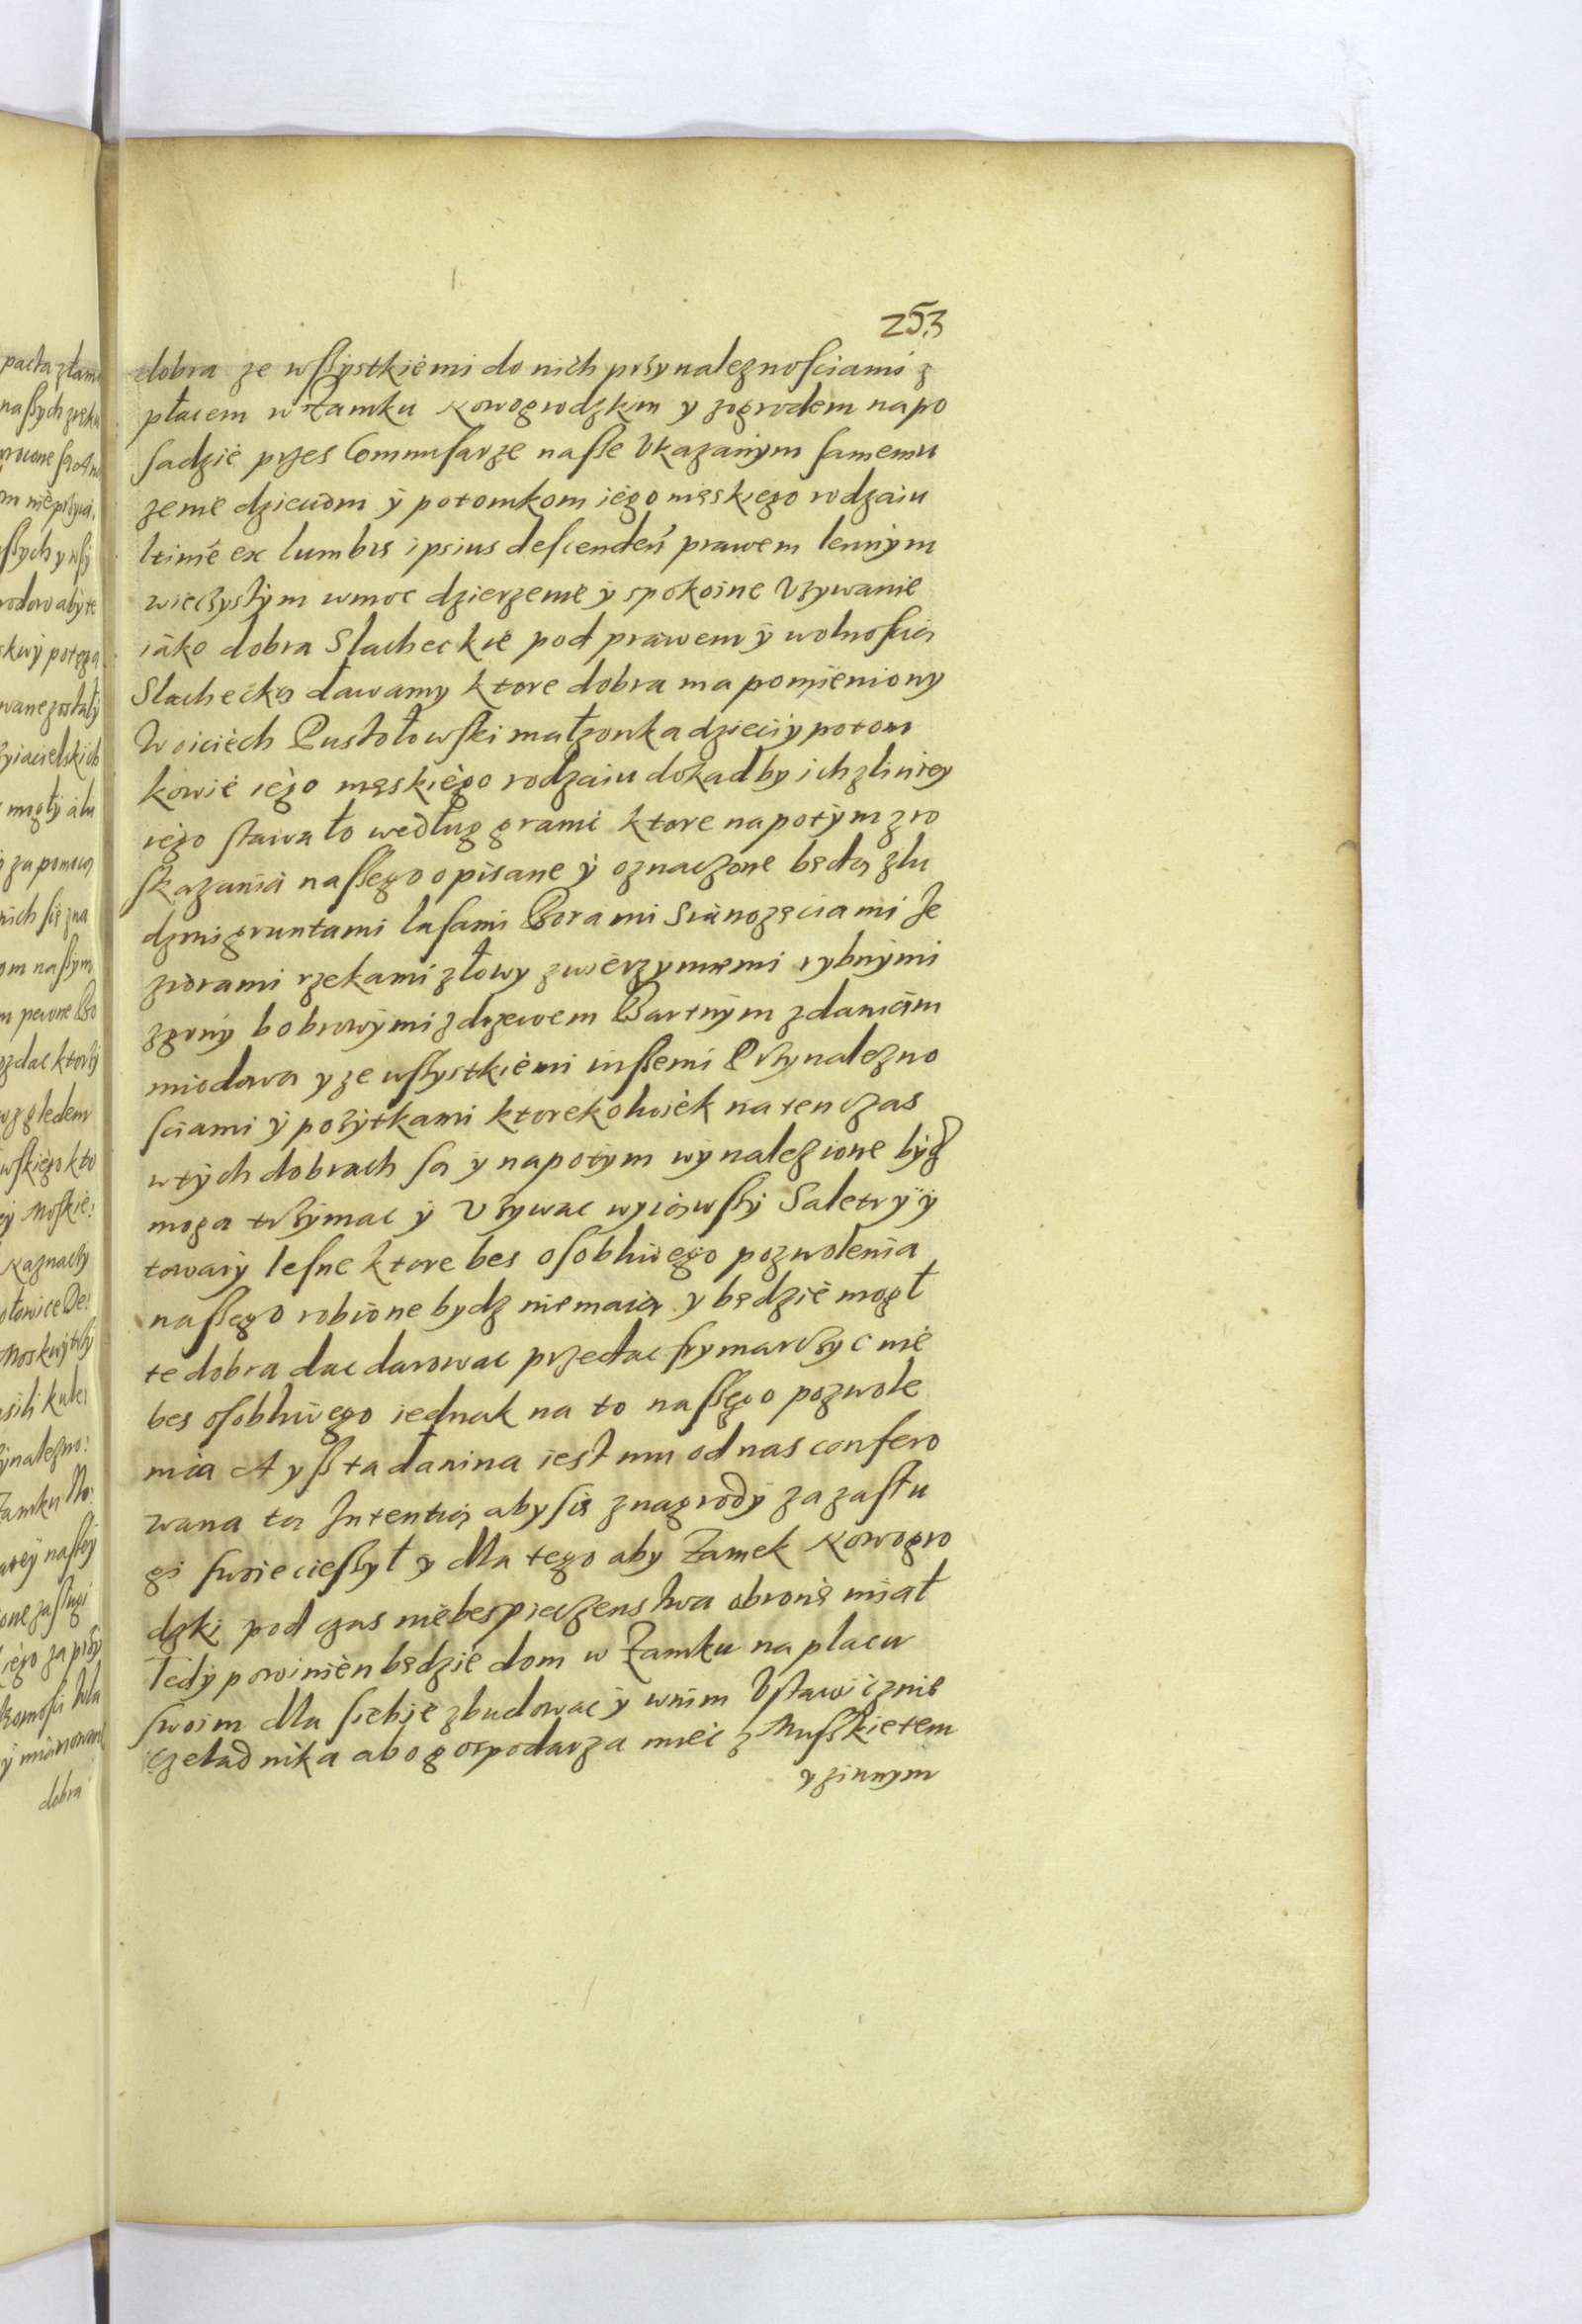 253
dobra ze wszystkiemi do nich przynaleznosciami z
płacem w Zamku Nowogrodzkim y zogrodem na po
sadzie przes Commisarze nasze Vkazanym samemu
zenie dzieciom ÿ potomkom iego męskiego rodzaiu
ltimè ex lumbis ipsius descendeń prawem lennÿm
wieczystÿm wmoc dzierzenie ÿ spokoine Vzywanie
iako dobra Slacheckie pod prawem ÿ wolnoscią
Slachecką dawamy ktore dobra ma pomieniony
Woiciech Pustołowski małzonka dzieci y potom
kowie iego męskiego rodzaiu dokad by ich zliniey
iego stawało według granic ktore napotÿm zro
skazania naszego opisane ÿ oznaczone będą zlu
dzmi gruntami lasami Borami Sianozęciami Je
ziorami rzekami złowy zwierzynnemi rybnÿmi
zgonÿ bobrowÿmi zdrzewem Bartnÿm zdaniam
miodową y ze wszystkiemi inszemi Przynalezno
sciami ÿ pozÿtkami ktorekolwiek natenczas
wtÿch dobrach są y napotÿm wÿnalezione bÿdz
moga trzÿmac ÿ Vzywac wyiąwszÿ Saletrÿ ÿ
towarÿ lesne ktore bes osobliwego pozwolenia
naszego robione bydz niemaią y będzie mogł
te dobra dac darowac przedac frymarczyc nie
bes osobliwego iednak na to naszego pozwole
nia A ysz ta danina iest mu od nas confero
wana tą Intentią aby się znagrodÿ za zasłu
gi swoie cieszył ÿ dla tego aby Zamek Nowogro
dzki pod czas niebespieczenstwa obronę miał
Tedÿ powinien będzie dom w Zamku na placu
swoim dla siebie zbudowac ÿ wnim Vstawicznie
czeladnika abo gospodarza miec z Muszkietem
y zinnym